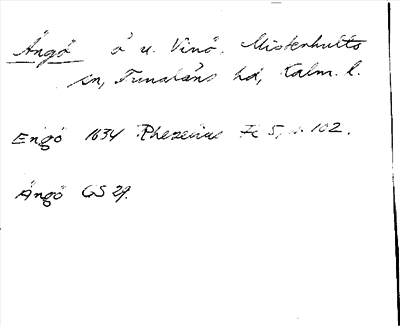 Ängö ö u. Vinö. Misterhults
sn, Tunaläns hd, Kalm. l.
Engö 1634 Rhezelius Fc 5, s. 102.
Ängö GS 29.